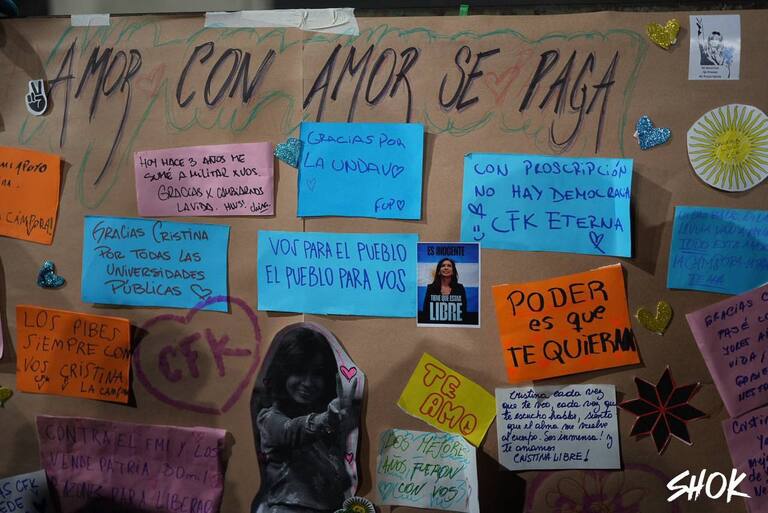 AMOR CON AMOR SE PAGA
MI APOYO
CÁMPORA!
HOY HACE 3 AÑOS ME
SUMÉ A MILITAR X VOS.
GRACIAS X CAMBIARNOS
LA VIDA.
GRACIAS POR
LA UNDAV
CON PROSCRIPCIÓN
NO HAY DEMOCRACIA
CFK ETERNA
GRACIAS CRISTINA
POR TODAS LAS
UNIVERSIDADES
PÚBLICAS
VOS PARA EL PUEBLO
EL PUEBLO PARA VOS
ES INOCENTE
TIENE QUE ESTAR
LIBRE
PODER
es que
TE QUIERAN
LOS PIBES
SIEMPRE CON
VOS CRISTINA
LA CAMPORA
CFK
TE
AMO
Cristina cada vez
que te veo, cada vez que
te escucho hablar, siento
que el alma me vuelve
al cuerpo. Sos inmensa! y
te amamos
CRISTINA LIBRE!
CONTRA EL FMI Y LOS
VENDE PATRIA 30mil
RAZONES PARA LIBERAR
DOS MEJORES
AÑOS FUERON
CON VOS
CFK
SHOK